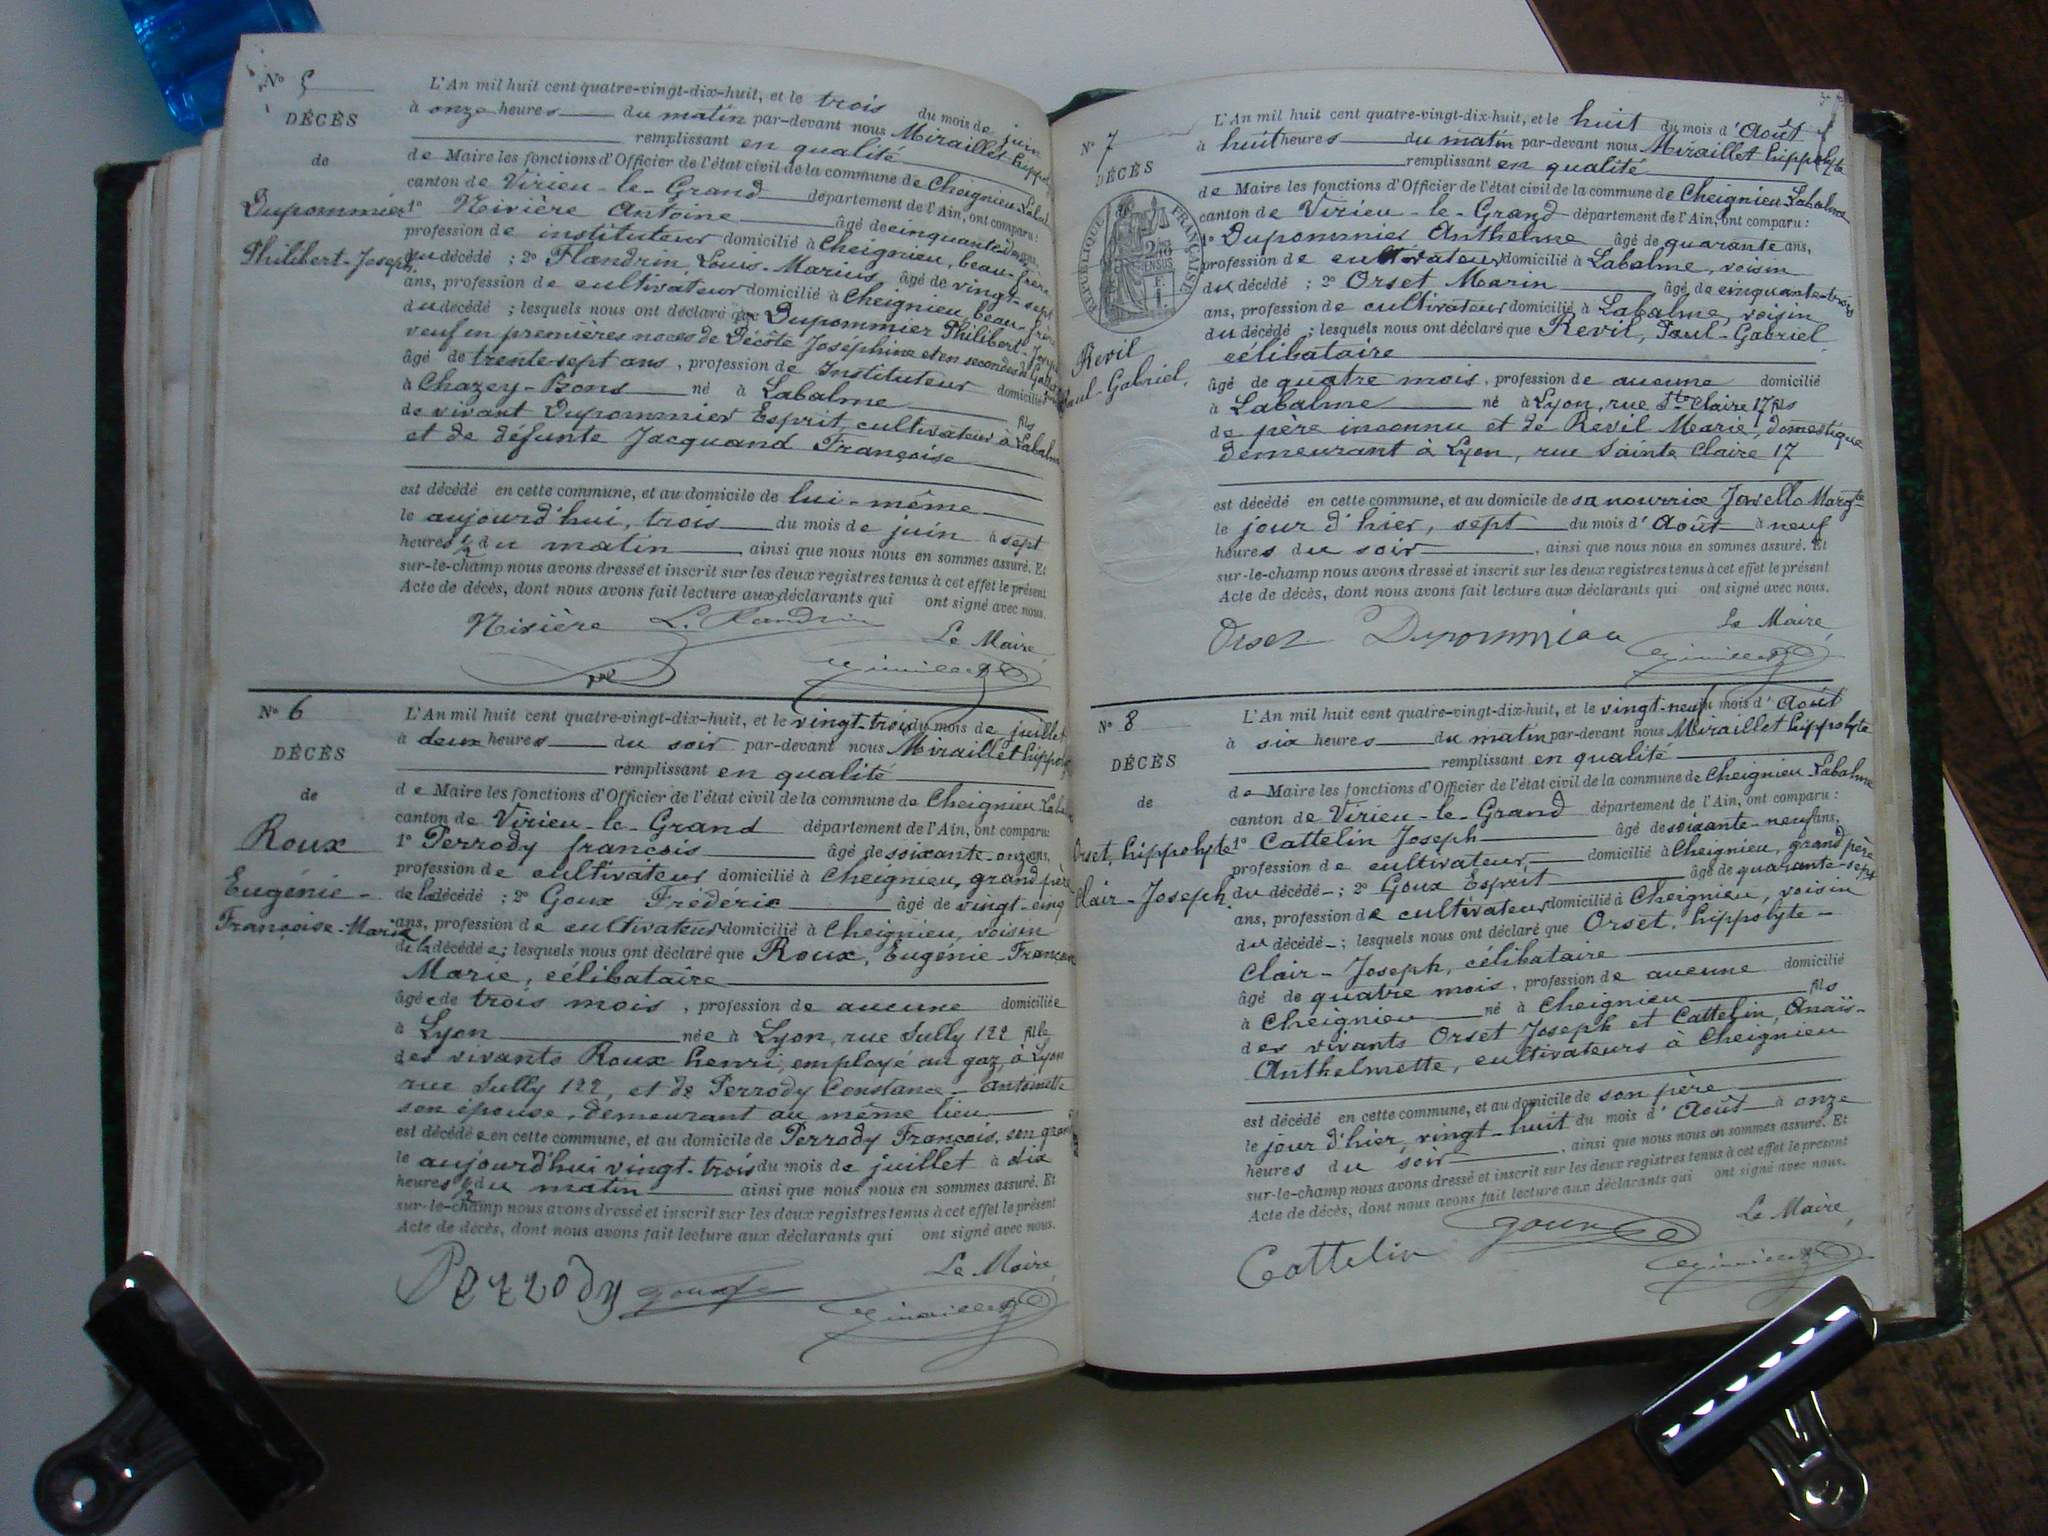 N° 5
DÉCÈS
de
Dupommier
Philibert-Joseph
L'An mil huit cent quatre-vingt-dix-huit, et le trois du mois de juin
à onze heures du matin par-devant nous Miraillet hippol
remplissant en qualité
de Maire les fonctions d'Officier de l'état civil de la commune de Cheignieu-Labal
canton de Virieu-le-Grand département de l'Ain, ont comparu:
1° Nivière Antoine âgé de cinquante ans,
profession de instituteur domicilié à Cheignieu, beau-frère
du décédé ; 2° Flandrin Louis-Marius âgé de vingt-sept
ans, profession de cultivateur domicilié à Cheignieu, beau-frère
du décédé ; lesquels nous ont déclaré que Dupommier Philibert-Josep
veuf en premières noces de Décôte Joséphine et en secondes de
âgé de trente-sept ans, profession de Instituteur domicilié
à Chazey-Bons né à Labalme fils
de vivant Dupommier Esprit, cultivateur à Labalme
et de défunte Jacquand Françoise
est décédé en cette commune, et au domicile de lui-même
le aujourd'hui, trois du mois de juin à sept
heures ½ du matin, ainsi que nous nous en sommes assuré. Et
sur-le-champ nous avons dressé et inscrit sur les deux registres tenus à cet effet le présent
Acte de décès, dont nous avons fait lecture aux déclarants qui ont signé avec nous.
Nivière L. Flandrin Le Maire,
N° 6
DÉCÈS
de
Roux
Eugénie-
Françoise-Marie
L'An mil huit cent quatre-vingt-dix-huit, et le vingt-trois du mois de juillet
à deux heures du soir par-devant nous Miraillet hippol
remplissant en qualité
de Maire les fonctions d'Officier de l'état civil de la commune de Cheignieu Laba
canton de Virieu-le-Grand département de l'Ain, ont comparu:
1° Perrody françois âgé de soixante-onze ans,
profession de cultivateur domicilié à Cheignieu, grand père
de la décédé ; 2° Goux Frédéric âgé de vingt-cinq
ans, profession de cultivateur domicilié à Cheignieu, voisin
de la décédée ; lesquels nous ont déclaré que Roux, Eugénie-Françoise
Marie, célibataire
âgée de trois mois, profession de aucune domiciliée
à Lyon née à Lyon, rue Sully 122 fille
des vivants Roux henri, employé au gaz, à Lyon
rue Sully 122, et de Perrody Constance-Antoinette
son épouse, demeurant au même lieu
est décédée en cette commune, et au domicile de Perrody François, son grand
le aujourd'hui vingt-trois du mois de juillet à dix
heures ½ du matin ainsi que nous nous en sommes assuré. Et
sur-le-champ nous avons dressé et inscrit sur les deux registres tenus à cet effet le présent
Acte de décès, dont nous avons fait lecture aux déclarants qui ont signé avec nous.
Le Maire,
Perrody goux
N° 7
DÉCÈS
RÉPUBLIQUE FRANÇAISE
Revil
Paul-Gabriel.
L'An mil huit cent quatre-vingt-dix-huit, et le huit du mois d'Août
à huit heures du matin par-devant nous Miraillet hippolyte
remplissant en qualité
de Maire les fonctions d'Officier de l'état civil de la commune de Cheignieu Labalme
canton de Virieu-le-Grand département de l'Ain, ont comparu:
1° Dupommier Anthelme âgé de quarante ans,
profession de cultivateur domicilié à Labalme, voisin
du décédé ; 2° Orset Marin âgé de cinquante-trois
ans, profession de cultivateur domicilié à Labalme, voisin
du décédé ; lesquels nous ont déclaré que Revil, Paul-Gabriel,
célibataire
âgé de quatre mois, profession de aucune domicilié
à Labalme né à Lyon, rue Ste Claire 17 fils
de père inconnu et de Revil Marie, domestique
demeurant à Lyon, rue Sainte Claire 17
est décédé en cette commune, et au domicile de sa nourrice Marg-te
le jour d'hier, sept du mois d'Août à neuf
heures du soir, ainsi que nous nous en sommes assuré. Et
sur-le-champ nous avons dressé et inscrit sur les deux registres tenus à cet effet le présent
Acte de décès, dont nous avons fait lecture aux déclarants qui ont signé avec nous.
Orset Dupommier Le Maire,
N° 8
DÉCÈS
de
Orset, hippolyte
Clair-Joseph
L'An mil huit cent quatre-vingt-dix-huit, et le vingt-neuf du mois d'Août
à six heures du matin par-devant nous Miraillet hippolyte
remplissant en qualité
de Maire les fonctions d'Officier de l'état civil de la commune de Cheignieu-Labalme
canton de Virieu-le-Grand département de l'Ain, ont comparu:
1° Cattelin Joseph âgé de soixante-neuf ans,
profession de cultivateur domicilié à Cheignieu, grand père
du décédé ; 2° Goux Esprit âgé de quarante-sept
ans, profession de cultivateur domicilié à Cheignieu, voisin
du décédé ; lesquels nous ont déclaré que Orset, hippolyte-
Clair-Joseph, célibataire
âgé de quatre mois, profession de aucune domicilié
à Cheignieu né à Cheignieu fils
des vivants Orset Joseph et Cattelin, Anaïs-
Anthelmette, cultivateurs à Cheignieu
est décédé en cette commune, et au domicile de son père
le jour d'hier, vingt-huit du mois d'Août à onze
heures du soir, ainsi que nous nous en sommes assuré. Et
sur-le-champ nous avons dressé et inscrit sur les deux registres tenus à cet effet le présent
Acte de décès, dont nous avons fait lecture aux déclarants qui ont signé avec nous.
Le Maire,
Cattelin goux